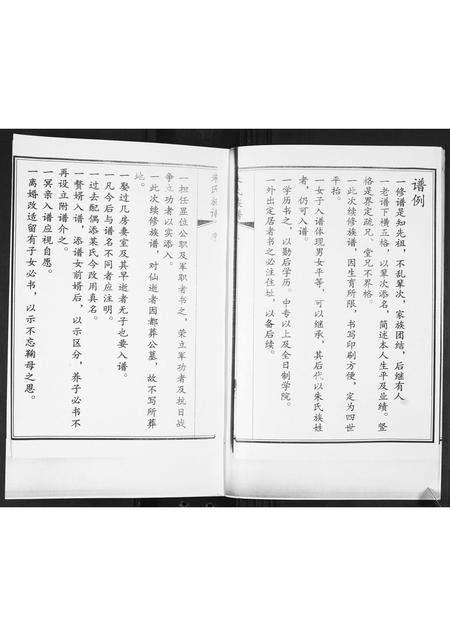 谱例
一修谱是知先祖，不乱辈次，家族团结，后继有人
一老谱下横五格，以辈次添名，简述本人生平及业绩。竖
格是界定疏兄、堂兄不界格。
一此次续修族谱，因生育所限，书写印刷方便，定为四世
平抬。
一女子入谱体现男女平等，可以继承，其后代以朱氏族姓
者，仍可入谱。
一学历书之，以勋后学历。中专以上及全日制学院。
一外出定居者书之必注住址，以备后续。
朱氏族谱
一担任显位公职及军职者书之，荣立军功者及抗日战
争立功者以实添入。
一此次续修族谱，对仙逝者因都葬公墓，故不写所葬
地。
一娶过几房妻室及其早逝者无子也要入谱。
一凡今后与谱名不同者应注明。
一过去配偶添某氏今改用真名。
一赘婿入谱，添谱女前婿后，以示区分，养子必书不
再设立附谱介之。
一冥亲入谱应视自愿。
一离婚改适留有子女必书，以示不忘鞠母之恩。